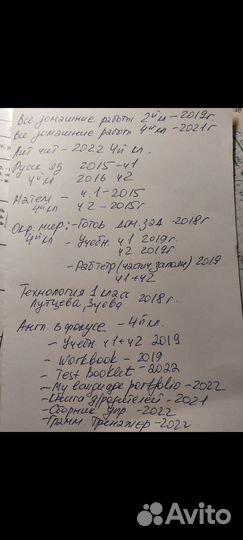 Все домашние работы 2й кл - 2019г.
Все домашние работы 4й кл - 2021г
Лит чит - 2022 4й кл.
Русск яз 2015 - ч1
4й кл 2016 ч2
Матем - ч.1 - 2015
4й кл ч2 - 2015г
Окр. мир: - Готов. дом. зад - 2018г
4й кл - Учебн. ч1 2019г.
ч2 2019г
- Раб тетр (части. заполн) 2019
ч1+ч2
Технология 1 класс
Лутцева, Зуева 2018г.
Англ. в фокусе - 4й кл.
- Учебн ч1+ч2 2019
- Workbook - 2019
- Test booklet - 2022
- My language portfolio - 2022
- Книга д/родителей - 2021
- Сборник упр. - 2022
- Грамм. тренажер - 2022
Avito